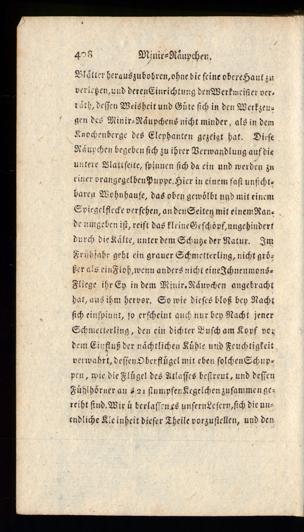 408 Minir-Räupchen.
Blätter herauszubohren, ohne die feine obere Haut zu
verletzen, und deren Einrichtung den Werkmeister ver-
räth, dessen Weisheit und Güte sich in den Werkzeu-
gen des Minir-Räupchens nicht minder, als in dem
Knochenberge des Elephanten gezeigt hat. Diese
Räupchen begeben sich zu ihrer Verwandlung auf die
untere Blattseite, spinnen sich da ein und werden zu
einer orangegelben Puppe. Hier in einem fast unsicht-
baren Wohnhause, das oben gewölbt und mit einem
Spiegelflecke versehen, an den Seiten mit einem Ran-
de umgeben ist, reift das kleine Geschöpf, ungehindert
durch die Kälte, unter dem Schutze der Natur. Im
Frühjahr geht ein grauer Schmetterling, nicht grö-
ßer als ein Floh, wenn anders nicht eine Ichneumons-
Fliege ihr Ey in dem Minir-Räupchen angebracht
hat, aus ihm hervor. So wie dieses bloß bey Nacht
sich einspinnt, so erscheint auch nur bey Nacht jener
Schmetterling, den ein dichter Busch am Kopf vor
dem Einfluß der nächtlichen Kühle und Feuchtigkeit
verwahrt, dessen Oberflügel mit eben solchen Schup-
pen, wie die Flügel des Atlasses bestreut, und dessen
Fühlhörner aus 21 stumpfen Kegelchen zusammen ge-
reiht sind. Wir überlassen es unsern Lesern, sich die un-
endliche Kleinheit dieser Theile vorzustellen, und den